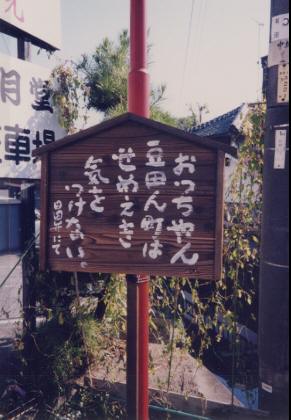 おっちゃん
豆田ん町は
せめえき
気を
つけない。
日田弁にて
月
車場